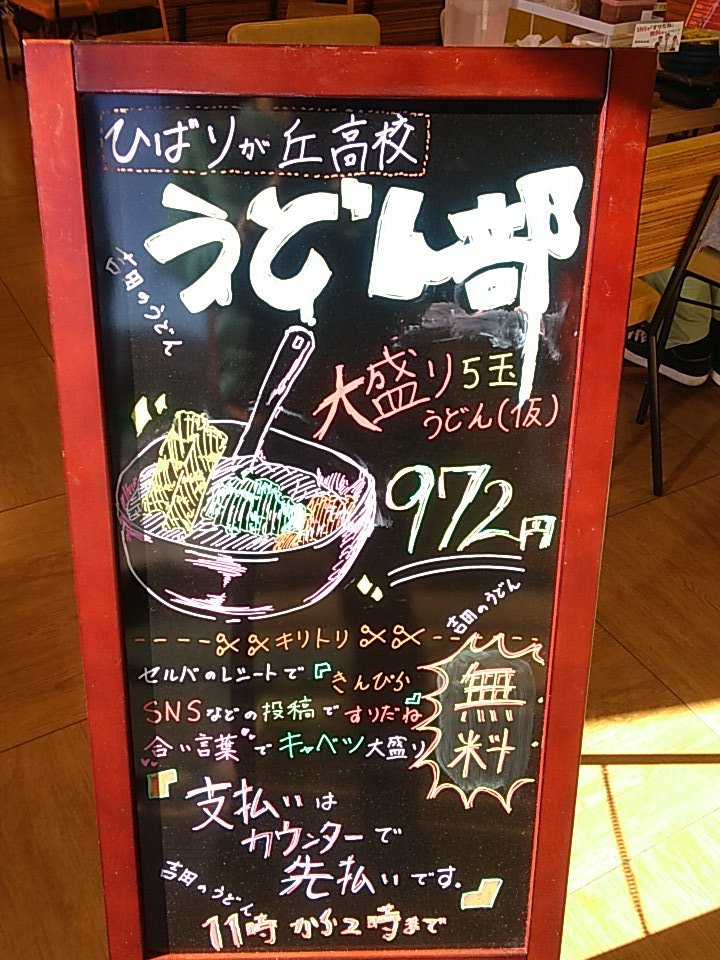 ひばりが丘高校
うどん部
吉田のうどん
大盛り5玉
うどん(仮)
972円
吉田のうどん
キリトリ
セルバのレシートで『きんぴら
SNSなどの投稿ですりだね』
"合い言葉"でキャベツ大盛り
無料
支払いは
カウンターで
先払いです。
吉田のうどん
11時から2時まで